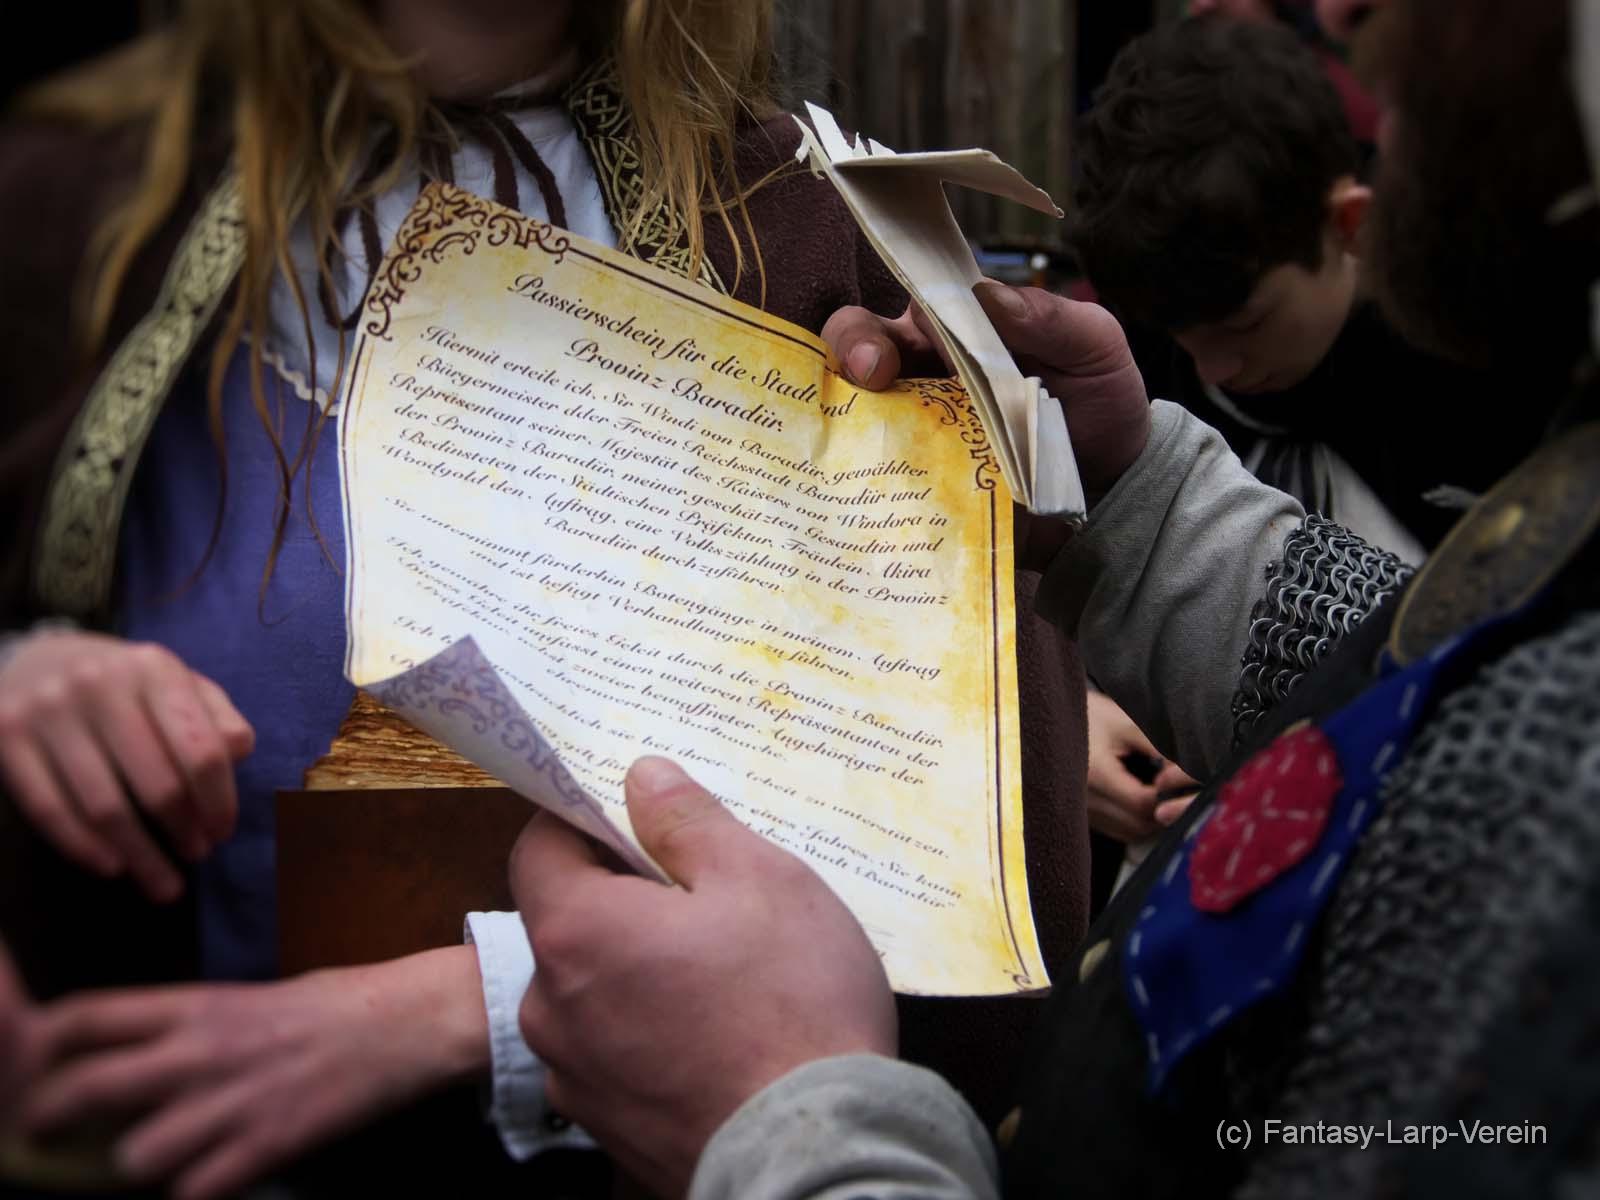 Passierschein für die Stadt und
Provinz Baradûr.
Hiermit erteile ich, Sir Windi von Baradûr, gewählter
Bürgermeister dder Freien Reichsstadt Baradûr und
Repräsentant seiner Majestät des Kaisers von Windora in
der Provinz Baradûr, meiner geschätzten Gesandtin und
Bedinsteten der Städtischen Präfektur, Fräulein Akira
Woodgold den Auftrag, eine Volkszählung in der Provinz
Baradûr durchzuführen.
Sie unternimmt fürderhin Botengänge in meinem Auftrag
und ist befugt Verhandlungen zu führen.
Ich gewähre ihr freies Geleit durch die Provinz Baradûr.
Dieses Geleit umfasst einen weiteren Repräsentanten der
Präfektur nebst zweier bewaffneter Angehöriger der
ehrenwerten Stadtwache.
Ich sie bei ihrer Arbeit zu unterstützen.
eines Jahres. Sie kann
der Stadt Baradûr"
(c) Fantasy-Larp-Verein